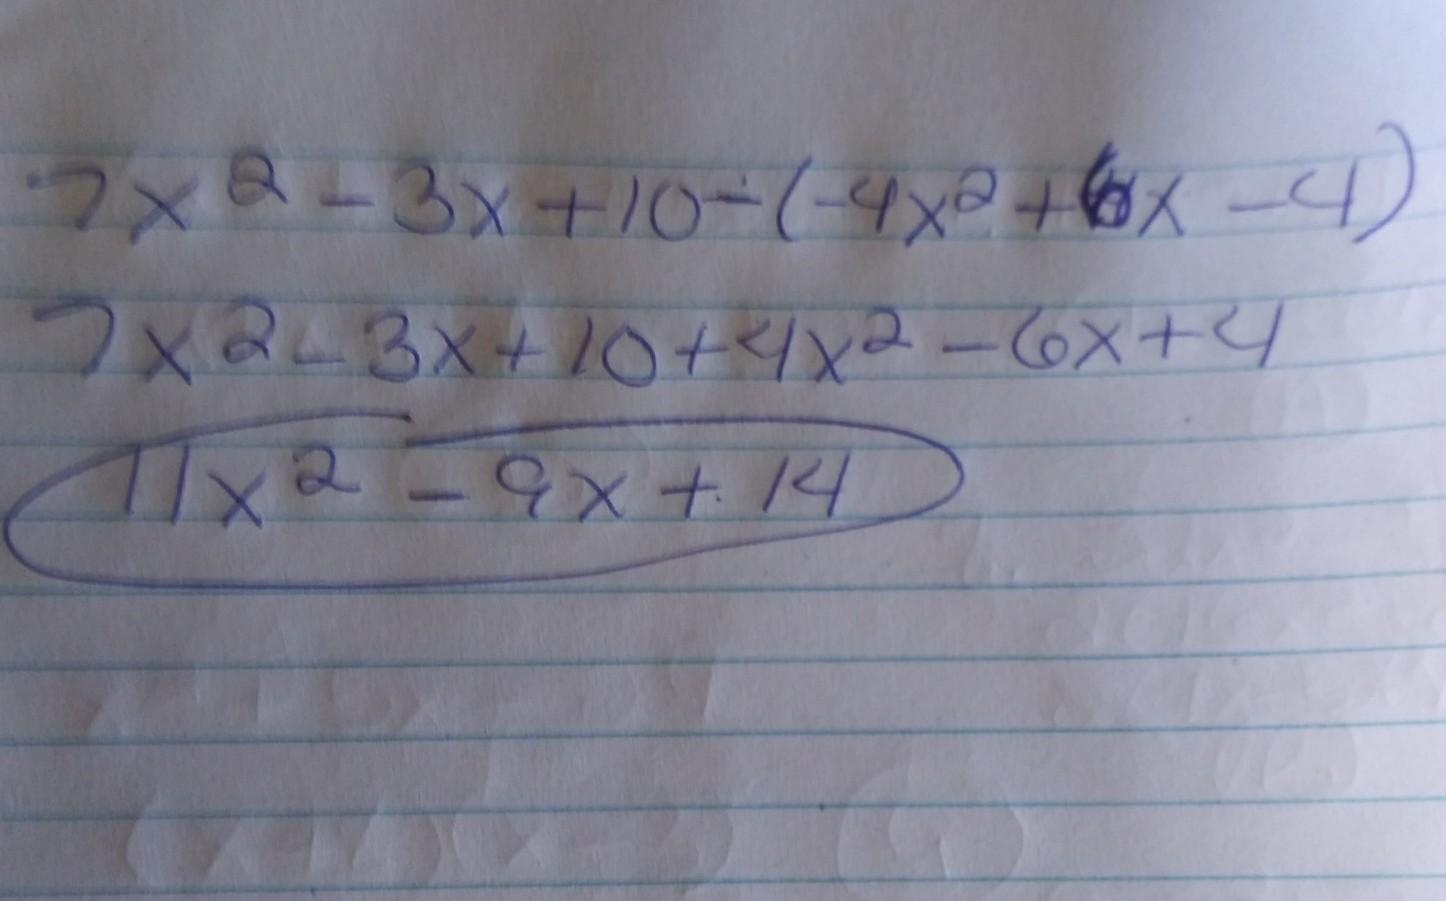 7x² - 3x + 10 - (-4x² + 6x - 4)
7x² - 3x + 10 + 4x² - 6x + 4
11x² - 9x + 14